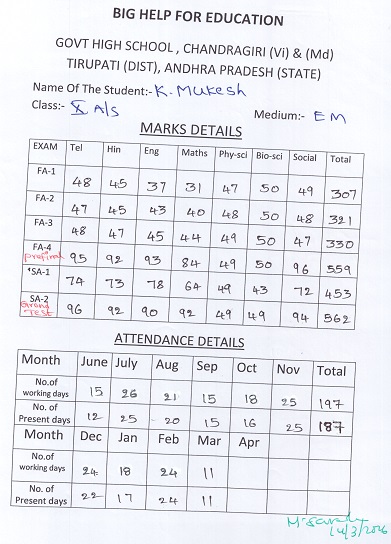 BIG HELP FOR EDUCATION
GOVT HIGH SCHOOL , CHANDRAGIRI (Vi) & (Md)
TIRUPATI (DIST), ANDHRA PRADESH (STATE)
Name Of The Student:- K. Mukesh
Class:- X A/s
Medium:- EM
MARKS DETAILS
EXAM Tel Hin Eng Maths Phy-sci Bio-sci Social Total
FA-1 48 45 37 31 47 50 49 307
FA-2 47 45 43 40 48 50 48 321
FA-3 48 47 45 44 49 50 47 330
FA-4 prefinal 95 92 93 84 49 50 96 559
*SA-1 74 73 78 64 49 43 72 453
SA-2 Grand Test 96 92 90 92 49 49 94 562
ATTENDANCE DETAILS
Month June July Aug Sep Oct Nov Total
No.of working days 15 26 21 15 18 25 197
No. of Present days 12 25 20 15 16 25 187
Month Dec Jan Feb Mar Apr
No.of working days 24 18 24 11
No. of Present days 22 17 24 11
14/3/2026